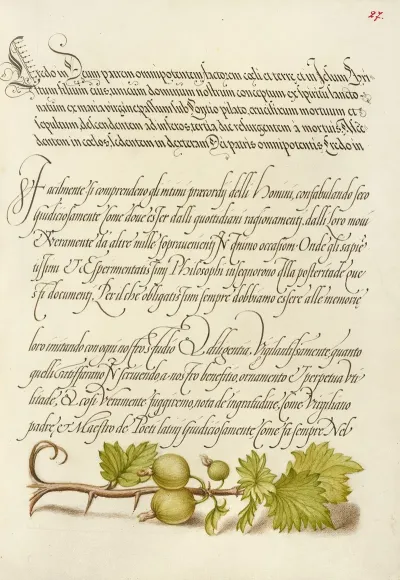 27.
Credo in Deum patrem omnipotentem factorem cęli et terrę et in Iesum Chri-
stum filium eius unicum dominum nostrum conceptum ex spiritu sancto
natum ex maria virgine passum sub Pontio pilato, crucifixum mortuum et
sepultum, descendentem ad inferos, tertia die resurgentem a mortuis. Ascē-
dentem in cœlos sedentem in dexteram Dei patris omnipotentis Credo in
Facilmente si comprendeno gli intimi præcordij delli Homini, confabulando seco
giudiciosamente some doue esser dalli quotidiani ragionamenti, dalli loro moui
Veramente da altre mille soprauenienti IN d'uno occasiom Onde gli sapiē
tissimi Et Esperimentatissimj Philosophi insequorono Alla posteritade que
sti documenti, Per il che obligatissimi sempre dobbiamo essere alle memorię
loro imitando con ogni nostro studio Et diligentia. Vigilantissamente quanto
quelli IN scriuendo a nostro benefitio, ornamento Et perpetua vti
litade, Et cosi Veramente fuggiremo, nota de ingratitudine, some Virgiliano
padre, et Maestro de Poeti latini giudiciosamente some fa sempre Nel